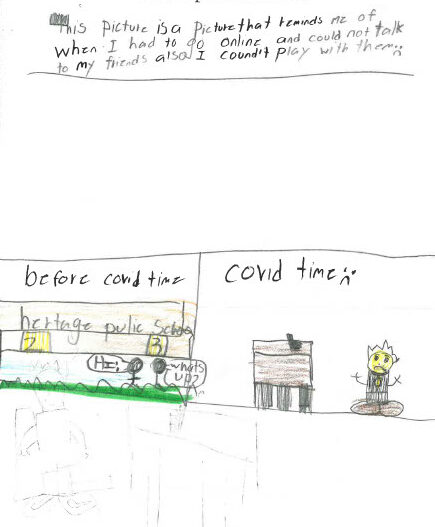 This picture is a picture that reminds me of
when I had to do online and could not talk
to my friends also I coundn't play with them
before covid time
covid time
hertage pulic school
7
3
Hi:
whats
up?